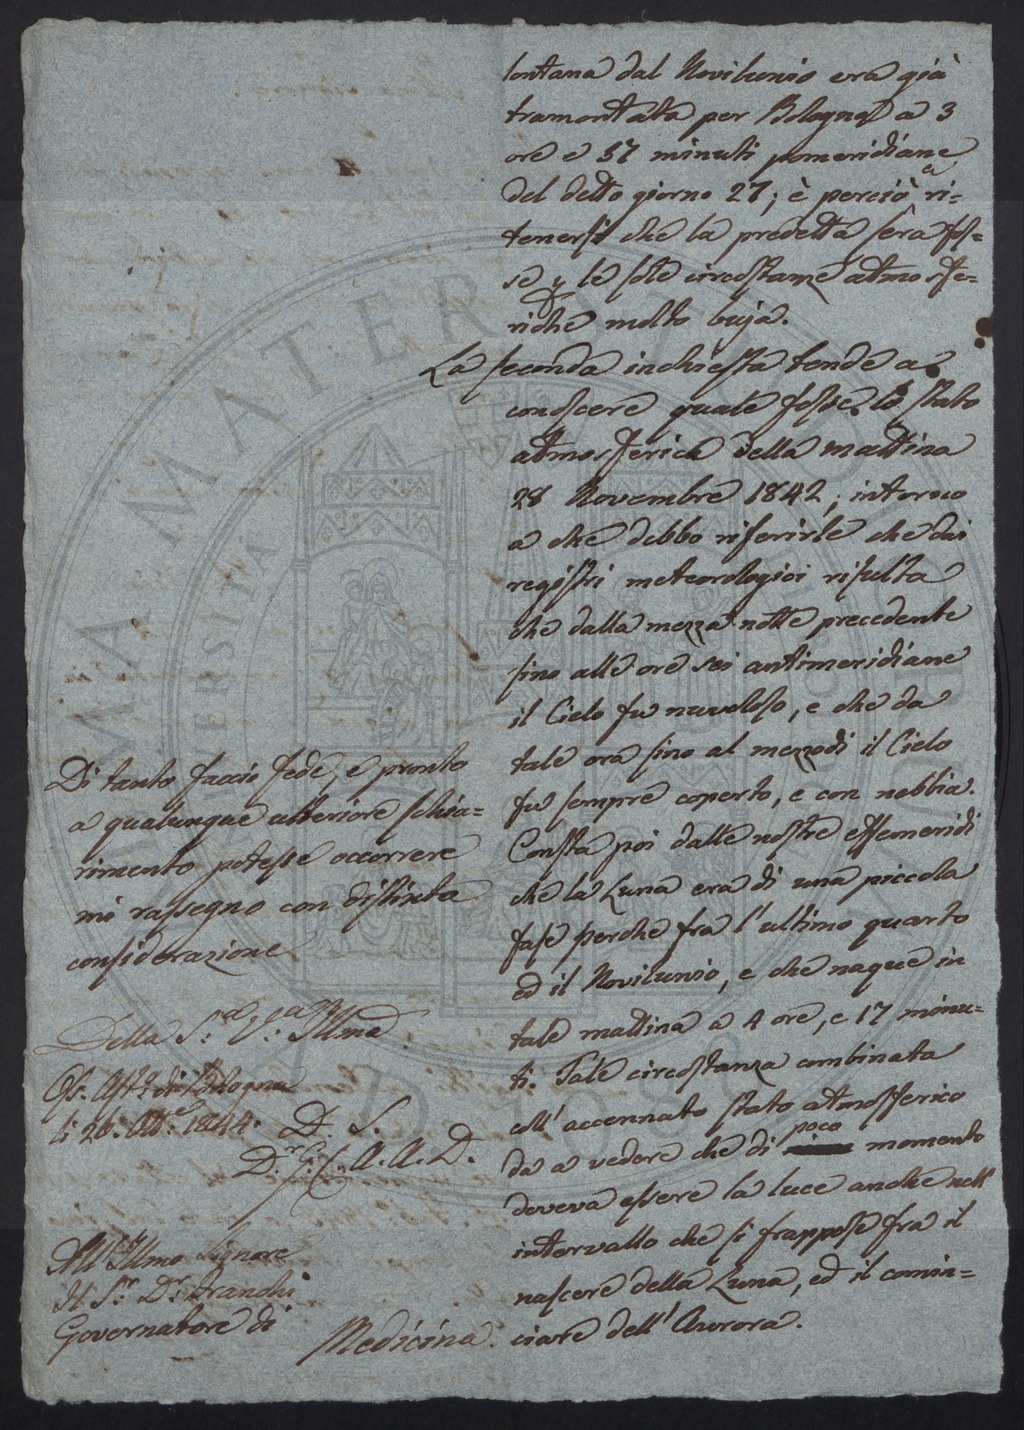 lontana dal Novilunio era già
tramontata per Bologna a 3
ore e 37 minuti pomeridiane
del detto giorno 27; è perciò a ri=
tenersi che la predetta sera fos=
se p le sole circostanze atmosfe=
riche molto buja.
La seconda inchiesta tende a
conoscere quale fosse lo stato
atmosferico della mattina
28 Novembre 1842; intorno
a che debbo riferirle che dai
registri meteorologici risulta
che dalla mezza notte precedente
sino alle ore sei antimeridiane
il Cielo fu nuvoloso, e che da
tale ora sino al mezzodì il Cielo
fu sempre coperto, e con nebbia.
Consta poi dalle nostre effemeridi
che la Luna era di una piccola
fase perche fra l'ultimo quarto
ed il Novilunio, e che naque in
tale mattina a 4 ore, e 17 minu=
ti. Tale circostanza combinata
coll'accennato stato atmosferico
da a vedere che di poco momento
doveva essere la luce anche nell'
intervallo che si frappose fra il
nascere della Luna, ed il comin=
ciare dell'Aurora.
Di tanto faccio fede, e pronto
a qualunque ulteriore schia=
rimento potesse occorrere
mi rassegno con distinta
considerazione
Della S.a V.a Illma
Oss. Astr. di Bologna
li 26. 1844. D. S.
D.r A. A. D.
All'Illmo Signore
Il S.r D.r Franchi
Governatore di
Medicina.
ALMA MATER STUDIORUM